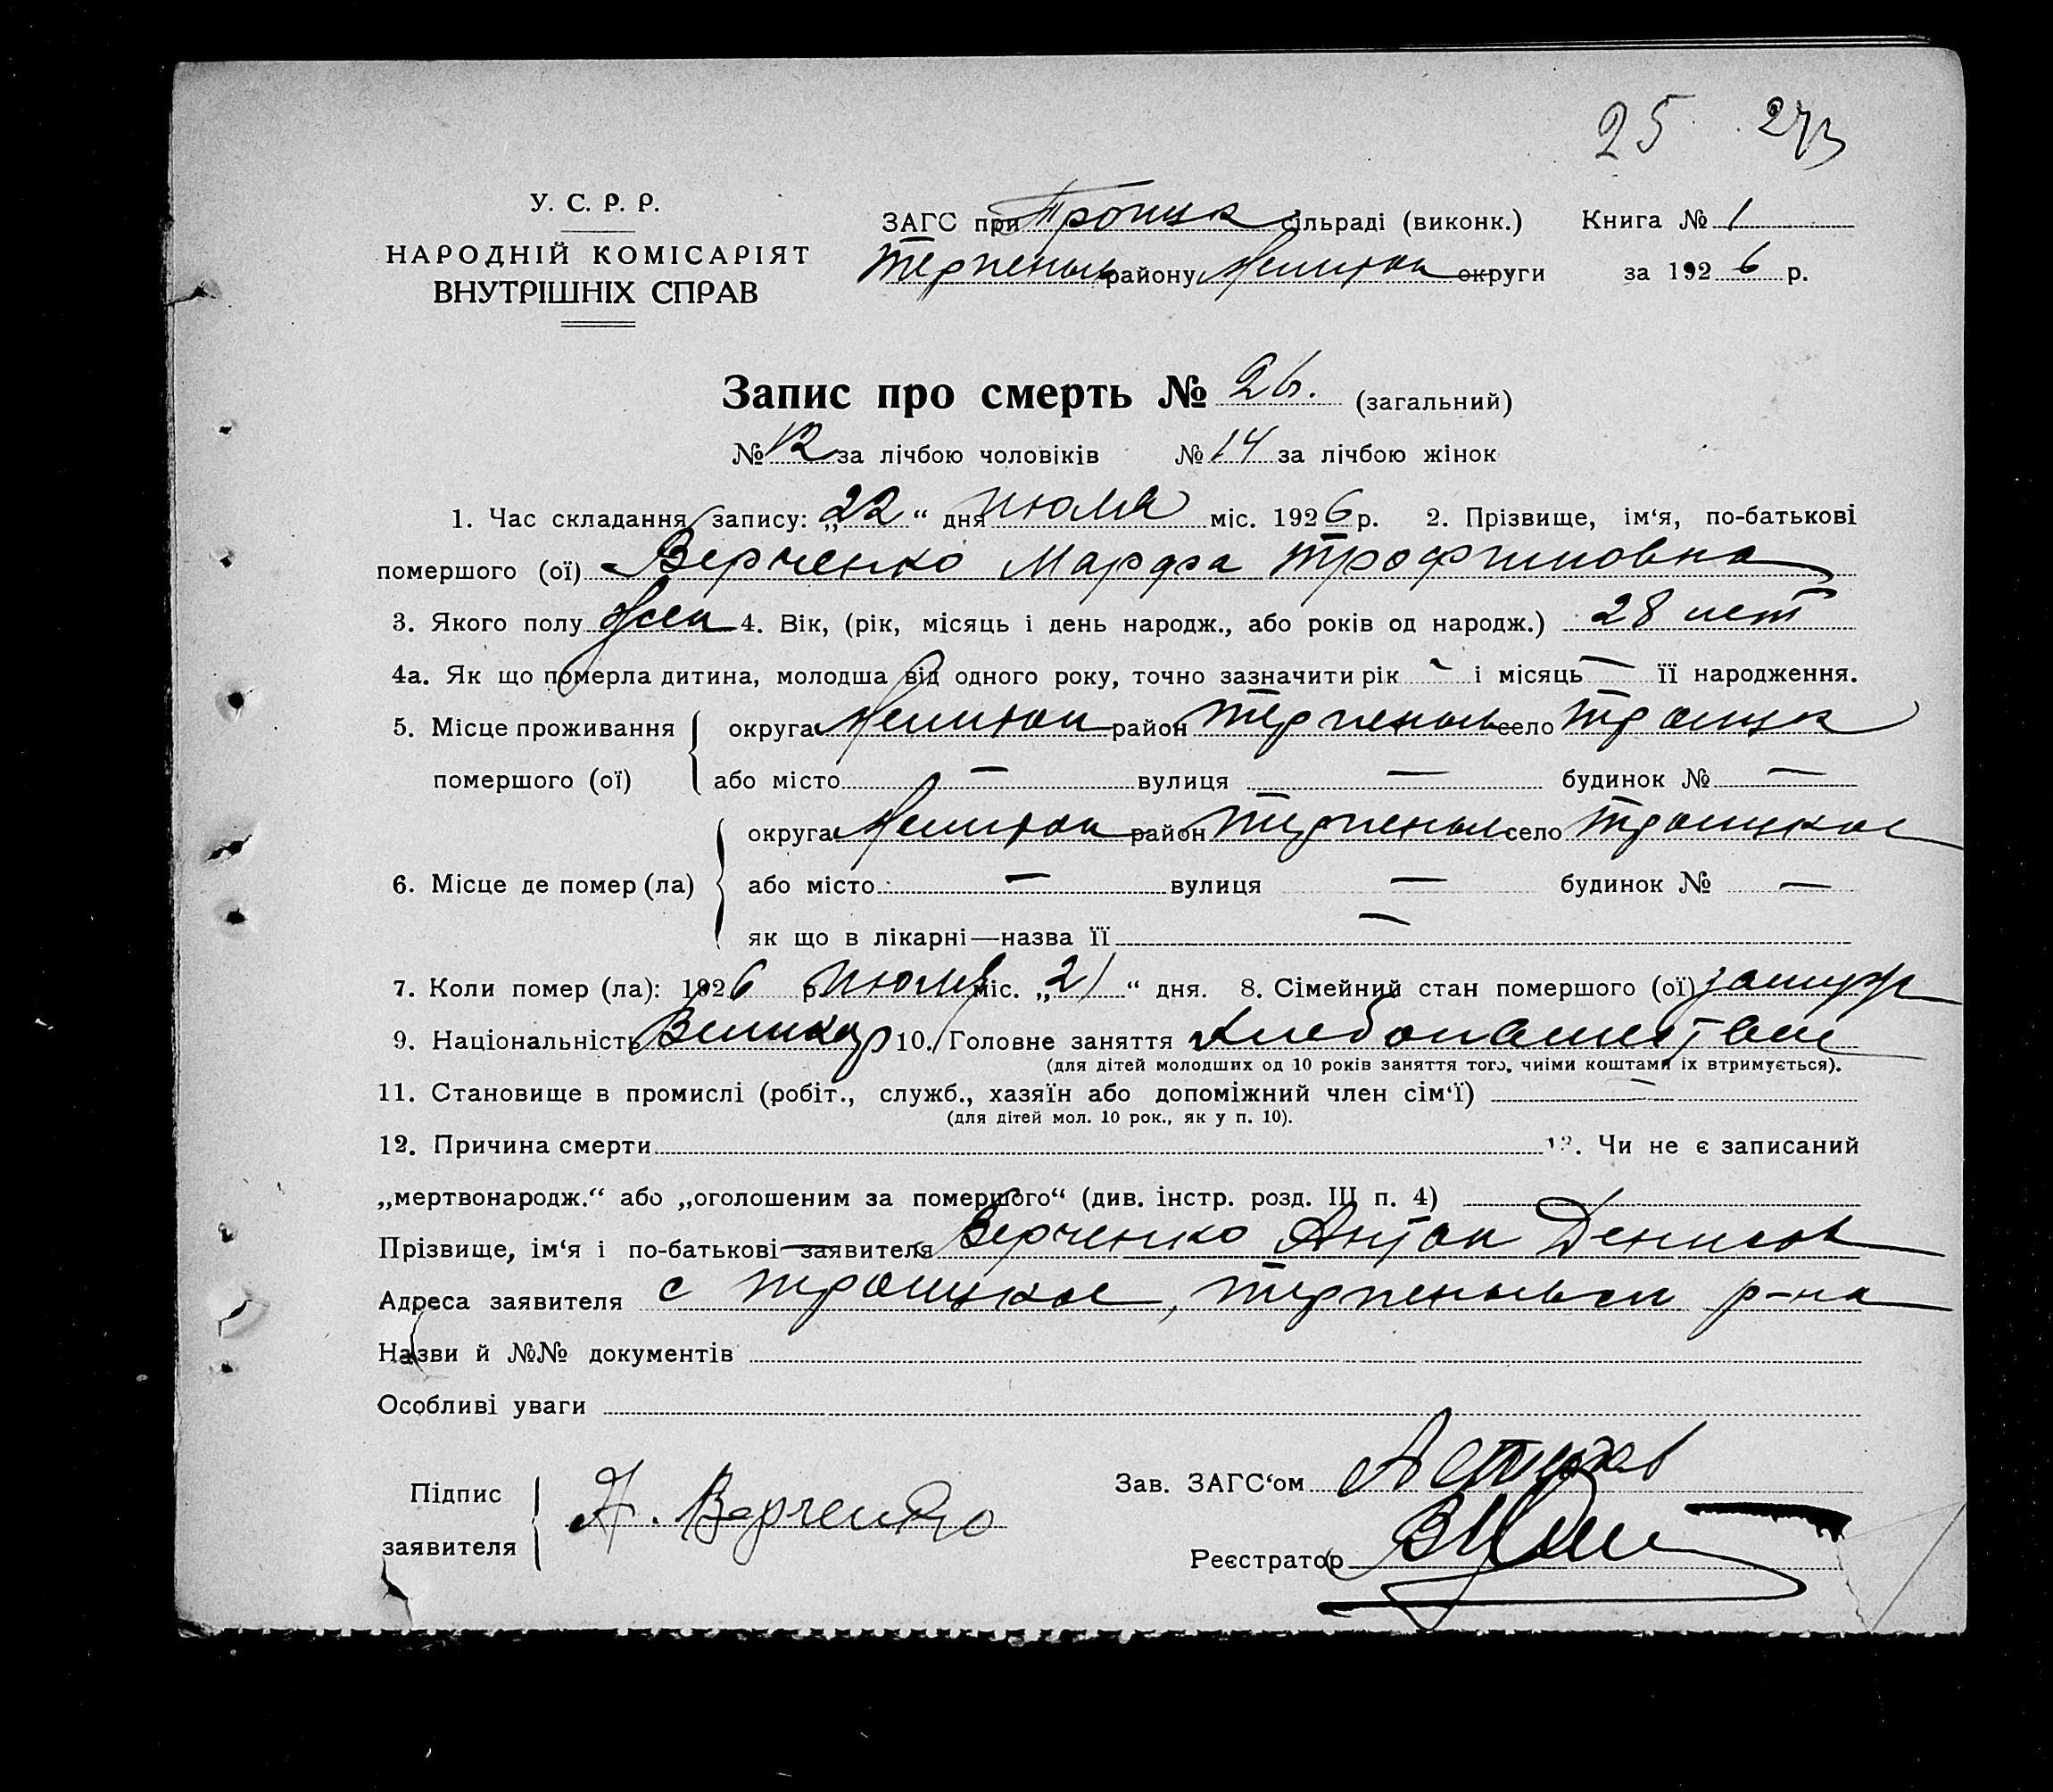 25 273
У. С. Р. Р.
НАРОДНІЙ КОМІСАРІЯТ
ВНУТРІШНІХ СПРАВ
ЗАГС при Троицк сільраді (виконк.) Книга № 1
Терпеньев району Мелитоп округи за 1926 р.
Запис про смерть № 26. (загальний)
№ 12 за лічбою чоловіків № 14 за лічбою жінок
1. Час складання запису: „22“ дня июля міс. 1926 р. 2. Прізвище, ім‘я, по-батькові
помершого (ої) Верченко Марфа Трофимовна
3. Якого полу жен 4. Вік, (рік, місяць і день народж., або років од народж.) 28 лет
4а. Як що померла дитина, молодша від одного року, точно зазначити рік — і місяць — її народження.
5. Місце проживання помершого (ої) округа Мелитоп район Терпеньев село Троицк
або місто — вулиця — будинок № —
6. Місце де помер (ла) округа Мелитоп район Терпеньев село Троицкое
або місто — вулиця — будинок № —
як що в лікарні—назва її —
7. Коли помер (ла): 1926 р июля міс. „21“ дня. 8. Сімейний стан помершого (ої) замуж
9. Національність Великор 10. Головне заняття Хлебопашество
(для дітей молодших од 10 років заняття того, чиїми коштами їх втримується).
11. Становище в промислі (робіт., служб., хазяїн або допоміжний член сім‘ї) —
(для дітей мол. 10 рок., як у п. 10).
12. Причина смерти 13. Чи не є записаний
„мертвонародж.“ або „оголошеним за помершого“ (див. інстр. розд. III п. 4)
Прізвище, ім‘я і по-батькові заявителя Верченко Антон Денисов
Адреса заявителя с Троицкое, Терпеньевск р-на
Назви й №№ документів
Особливі уваги
Підпис заявителя А. Верченко
Зав. ЗАГС‘ом
Реєстратор